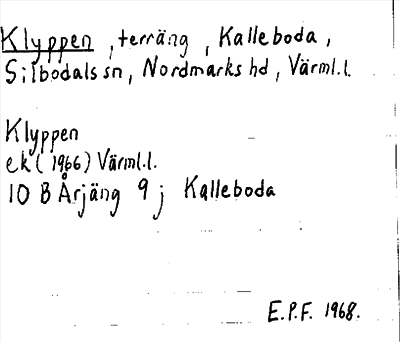 Klyppen, terräng, Kalleboda,
Silbodals sn, Nordmarks hd, Värml.l.
Klyppen
ek (1966) Värml.l.
10 B Årjäng 9 j Kalleboda
E.P.F. 1968.